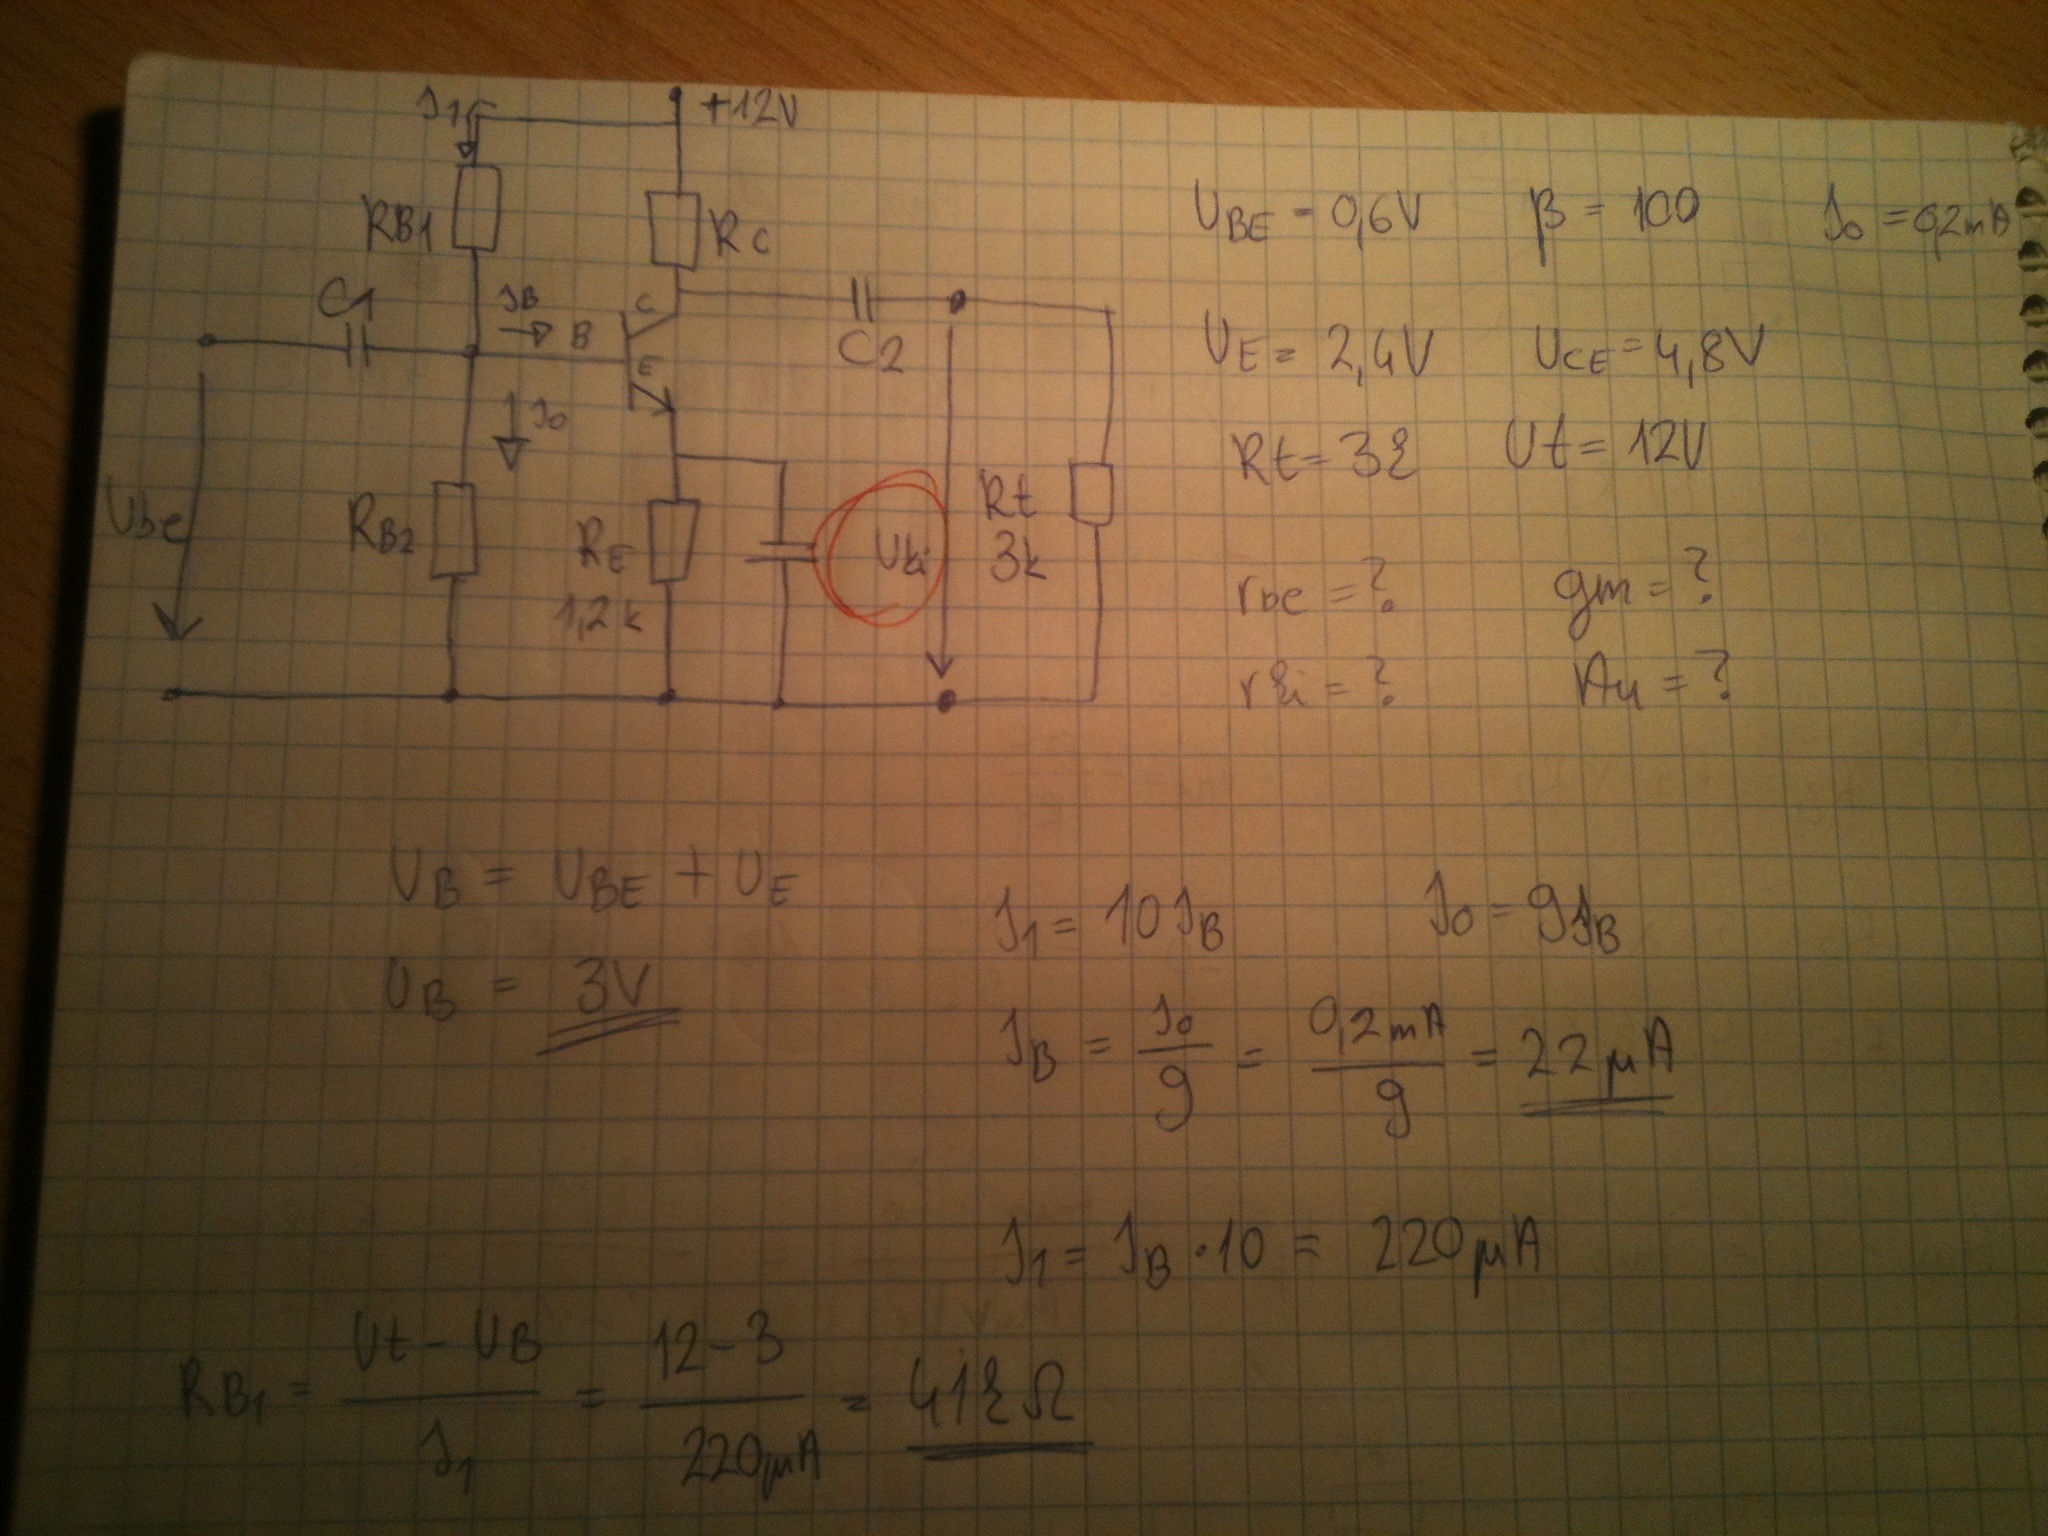 I1
+12V
RB1
RC
C1
IB
B
C
E
C2
I0
Ube
RB2
RE
1,2k
Uki
Rt
3k
UBE = 0,6V β = 100 I0 = 0,2mA
UE = 2,4V UCE = 4,8V
Rt = 3k Ut = 12V
rbe = ? gm = ?
rki = ? Au = ?
UB = UBE + UE
UB = 3V
I1 = 10 IB I0 = 9IB
IB = I0 / 9 = 0,2mA / 9 = 22μA
I1 = IB · 10 = 220μA
RB1 = Ut - UB / I1 = 12-3 / 220μA = 41kΩ